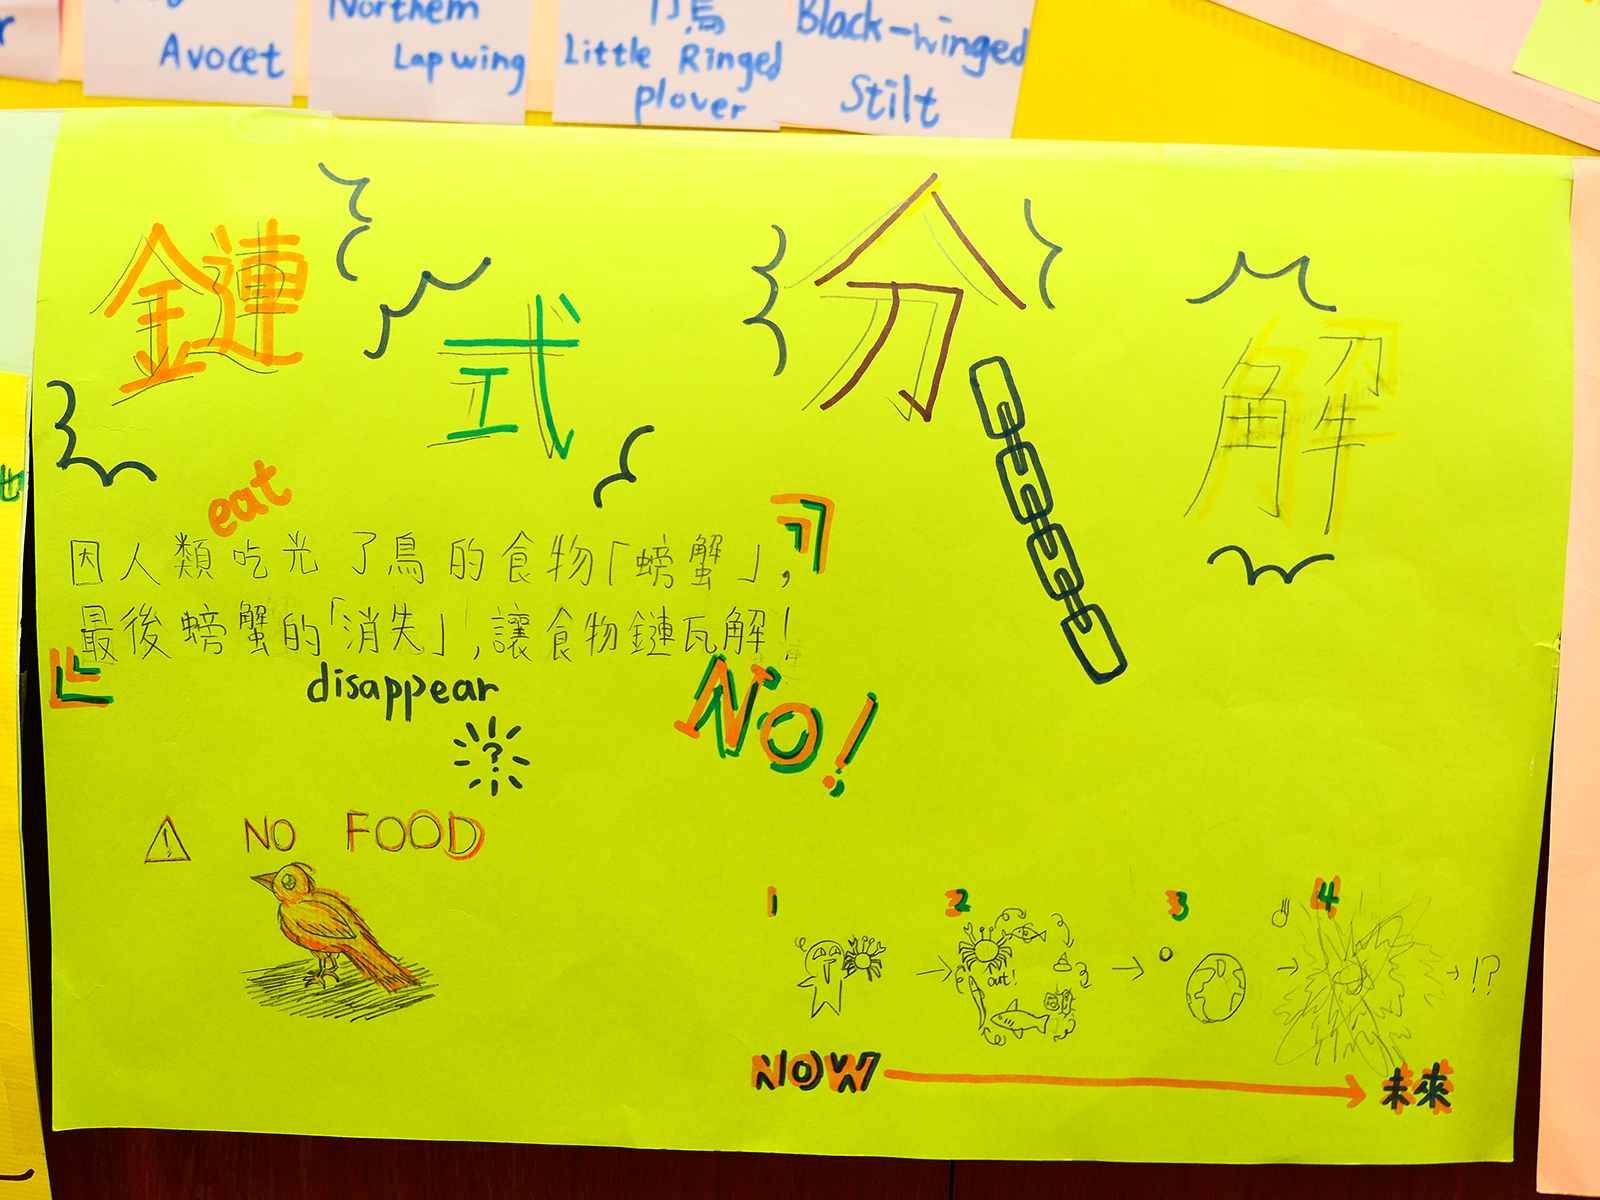 Northern
Avocet
Lapwing
Little Ringed
plover
Black-winged
Stilt
鏈式分解
eat
因人類吃光了鳥的食物「螃蟹」,
最後螃蟹的「消失」,讓食物鏈瓦解!
disappear
?
NO!
! NO FOOD
1 2 3 4
out!
!?
NOW 未來